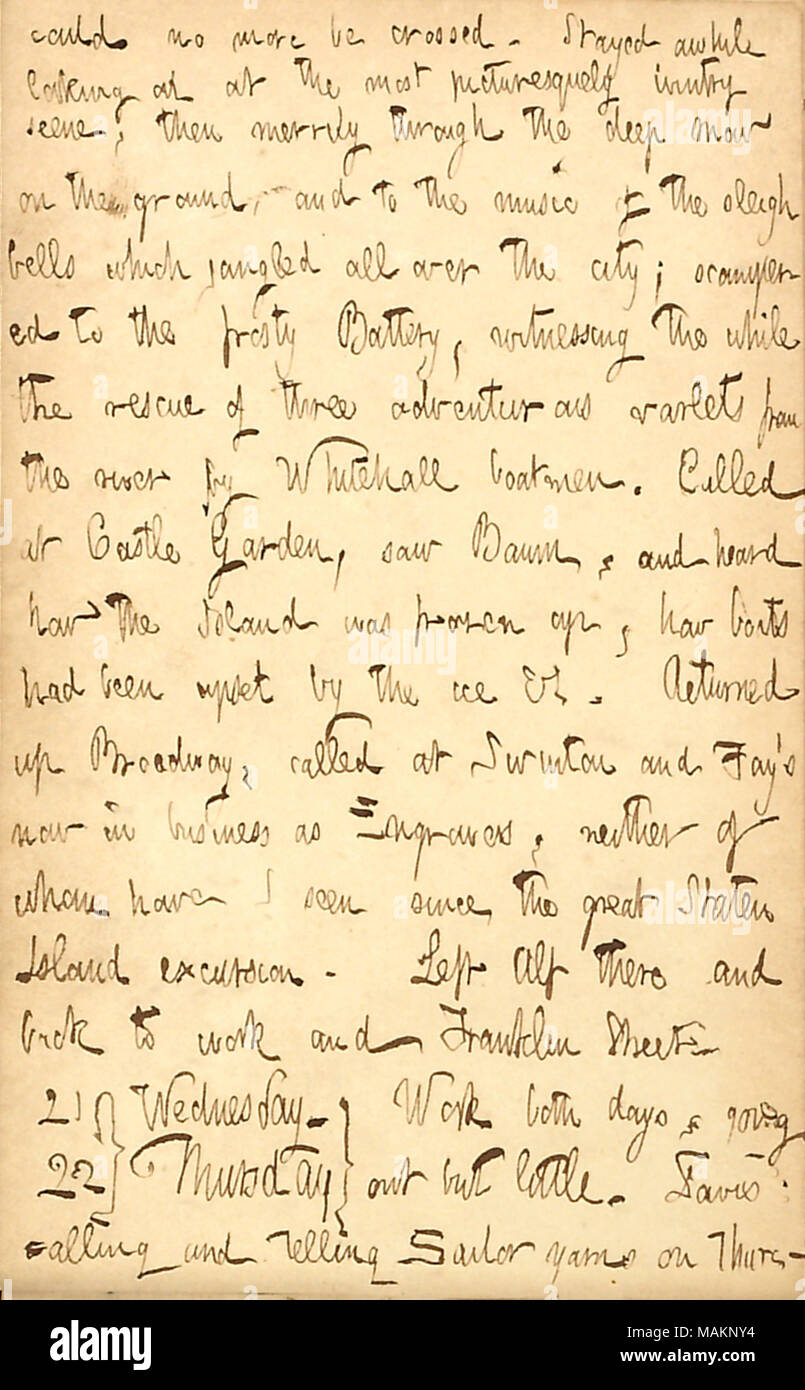 could no more be crossed. Stayed awhile
looking at at the most picturesquely wintry
scene; then merrily through the deep snow
on the ground, and to the music of the sleigh
bells which jangled all over the city; scamper-
ed to the frosty Battery, witnessing the while
the rescue of three adventurous varlets from
the river by Whitehall boatmen. Called
at Castle Garden, saw Baum, and heard
how the Island was frozen up, how boats
had been upset by the ice &c. Returned
up Broadway, called at Swinton and Fay's
now in business as Engravers, neither of
whom have I seen since the great Staten
Island excursion. Left Alf there and
back to work and Franklin Street.
21 } Wednesday. } Work both days, going
22 } Thursday } out but little. Davis
calling and telling Sailor yarns on Thurs-
alamy
Image ID: MAKNY4
www.alamy.com